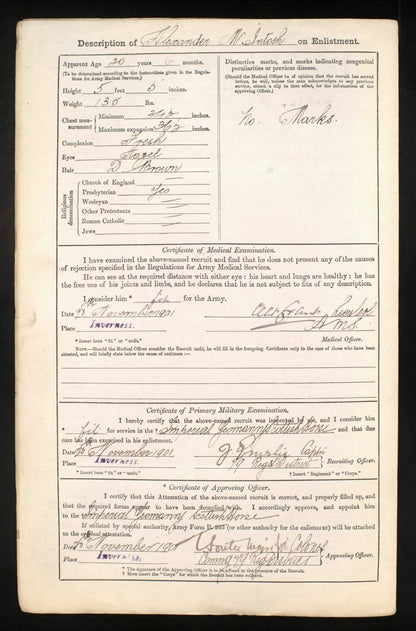 Description of Alexander McIntosh on Enlistment.
Apparent Age 20 years 6 months.
(To be determined according to the instructions given in the Regulations for Army Medical Services.)
Height 5 feet 5 inches.
Weight 135 lbs.
Chest measurement { Minimum inches.
Maximum expansion inches.
Complexion Fresh
Eyes Hazel
Hair D. Brown
Religious denomination
Church of England
Presbyterian Yes
Wesleyan
Other Protestants
Roman Catholic
Jews
Distinctive marks, and marks indicating congenital peculiarities or previous disease.
(Should the Medical Officer be of opinion that the recruit has served before, he will, unless the man acknowledges to any previous service, attach a slip to that effect, for the information of the approving Officer.)
No. Marks.
Certificate of Medical Examination.
I have examined the above-named recruit and find that he does not present any of the causes
of rejection specified in the Regulations for Army Medical Services.
He can see at the required distance with either eye: his heart and lungs are healthy: he has
the free use of his joints and limbs, and he declares that he is not subject to fits of any description.
I consider him * fit for the Army.
Date November 1901
Place Inverness.
Medical Officer.
* Insert here "fit" or "unfit."
NOTE.—Should the Medical Officer consider the Recruit unfit, he will fill in the foregoing Certificate only in the case of those who have been attested, and will briefly state below the cause of unfitness:—
Certificate of Primary Military Examination.
I hereby certify that the above-named recruit was inspected by me, and I consider him
* fit for service in the † Imperial Yeomanry Scottish Horse and that due
care has been exercised in his enlistment.
Date November 1901
Place Inverness. Recruiting Officer.
* Insert here "fit" or "unfit." † Insert "Regiment" or "Corps."
* Certificate of Approving Officer.
I certify that this Attestation of the above-named recruit is correct, and properly filled up, and
that the required forms appear to have been complied with. I accordingly approve, and appoint him
to the † Imperial Yeomanry Scottish Horse
If enlisted by special authority, Army Form B. 203 (or other authority for the enlistment) will be attached
to the original attestation.
Date November 190
Place Inverness. Approving Officer.
* The signature of the Approving Officer is to be affixed in the presence of the Recruit.
† Here insert the "Corps" for which the Recruit has been enlisted.